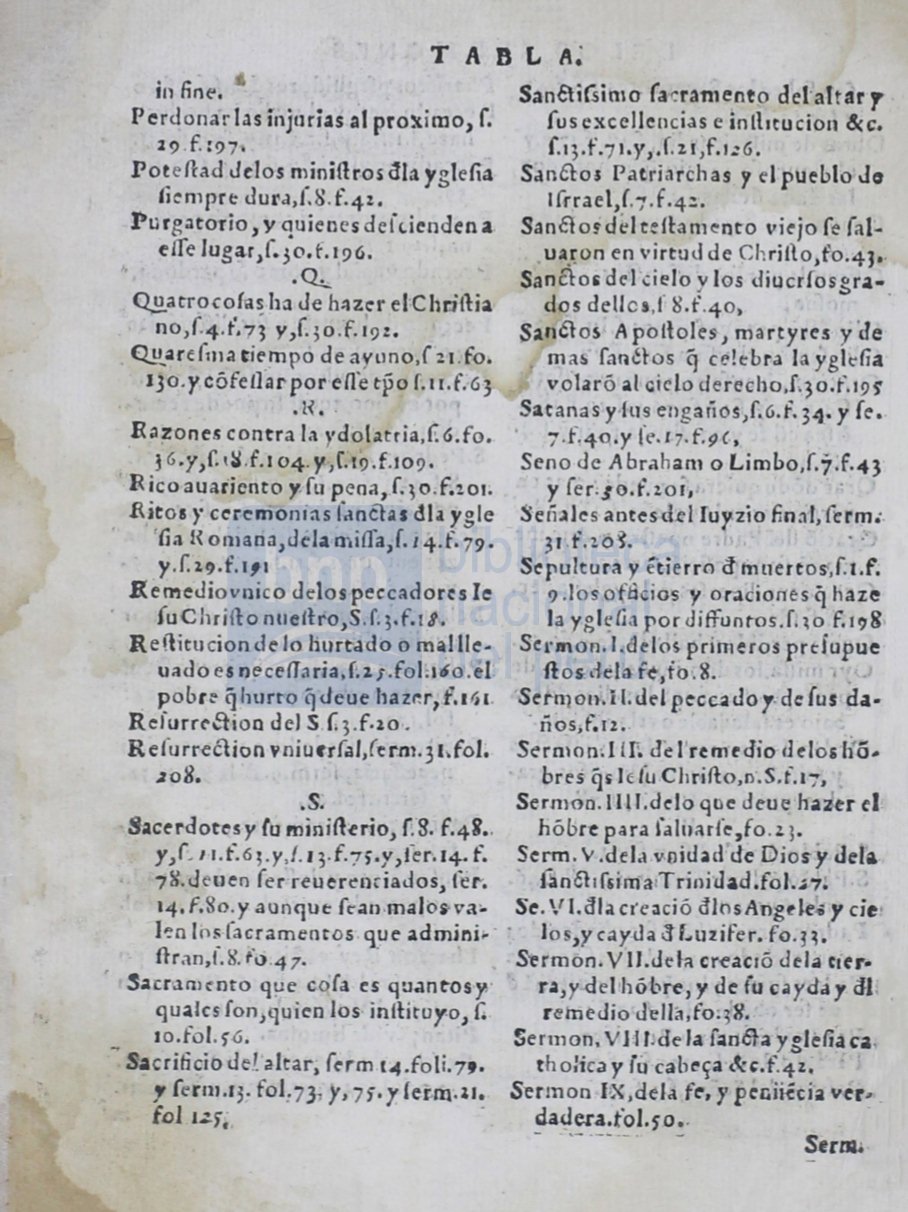 TABLA.
in fine.
Perdonar las injurias al proximo, ſ.
29.f.197.
Poteſtad delos miniſtros đla ygleſia
ſiempre dura,ſ.8.f.42.
Purgatorio, y quienes deſcienden a
eſſe lugar,ſ.30.f.196.
.Q.
Quatro coſas ha de hazer el Chriſtia
no,ſ.4.f.73 y,ſ.30.f.192.
Quareſma tiempo de ayuno,ſ 21.fo.
130.y cõfeſſar por eſſe tp̃o ſ.11.f.63
.R.
Razones contra la ydolatria,ſ.6.fo.
36.y,ſ.18.f.104.y,ſ.19.f.109.
Rico auariento y ſu pena, ſ.30.f.201.
Ritos y ceremonias ſanctas đla ygle
ſia Romana,dela miſſa,ſ.14.f.79.
y.ſ.29.f.191
Remedio vnico delos peccadores Ie
ſu Chriſto nueſtro,S.ſ.3.f.18.
Reſtitucion de lo hurtado o mal lle-
uado es neceſſaria,ſ.25.fol.160.el
pobre q̃ hurto q̃ deue hazer, f.161
Reſurrection del S ſ.3.f.20.
Reſurrection vniuerſal,ſerm.31.fol.
208.
.S.
Sacerdotes y ſu miniſterio, ſ.8. f.48.
y,ſ.11.f.63.y,ſ.13.f.75.y,ſer.14. f.
78.deuen ſer reuerenciados, ſer.
14.f.80.y aunque ſean malos va-
len los ſacramentos que admini-
ſtran,ſ.8.fo 47.
Sacramento que coſa es quantos y
quales ſon,quien los inſtituyo, ſ.
10.fol.56.
Sacrificio del altar, ſerm 14.foli.79.
y ſerm.13. fol.73. y, 75. y ſerm.21.
fol 125.
Sanctiſsimo ſacramento del altar y
ſus excellencias e inſtitucion &c.
ſ.13.f.71.y,.ſ.21,f.126.
Sanctos Patriarchas y el pueblo de
Iſrrael,ſ.7.f.42.
Sanctos del teſtamento viejo ſe ſal-
uaron en virtud de Chriſto,fo.43.
Sanctos del cielo y los diuerſos gra-
dos dellos,ſ 8.f.40,
Sanctos Apoſtoles, martyres y de
mas ſanctos q̃ celebra la ygleſia
volarõ al cielo derecho,ſ.30.f.195
Satanas y ſus engaños,ſ.6.f.34. y ſe.
7.f.40.y ſe.17.f.96,
Seno de Abraham o Limbo,ſ.7.f.43
y ſer.30.f.201,
Señales antes del Iuyzio final, ſerm.
31 f.208.
Sepultura y ẽtierro đ muertos,ſ.1.f.
9.los officios y oraciones q̃ haze
la ygleſia por diffuntos.ſ.30 f.198
Sermon.I.delos primeros preſupue
ſtos dela fe,fo.8.
Sermon.II.del peccado y de ſus da-
ños,f.12.
Sermon.III. del remedio delos hõ-
bres q̃s Ieſu Chriſto,n.S.f.17,
Sermon.IIII.delo que deue hazer el
hõbre para ſaluarſe,fo.23.
Serm.V.dela vnidad de Dios y dela
ſanctiſsima Trinidad.fol.27.
Se.VI.đla creació đlos Angeles y cie
los,y cayda đ Luzifer. fo.33.
Sermon.VII.dela creaciõ dela tier-
ra,y del hõbre, y de ſu cayda y đl
remedio della,fo.38.
Sermon.VIII.de la ſancta ygleſia ca
tholica y ſu cabeça &c.f.42.
Sermon IX,dela fe, y penitẽcia ver-
dadera.fol.50.
Serm.
biblioteca
nacional
del
bnp